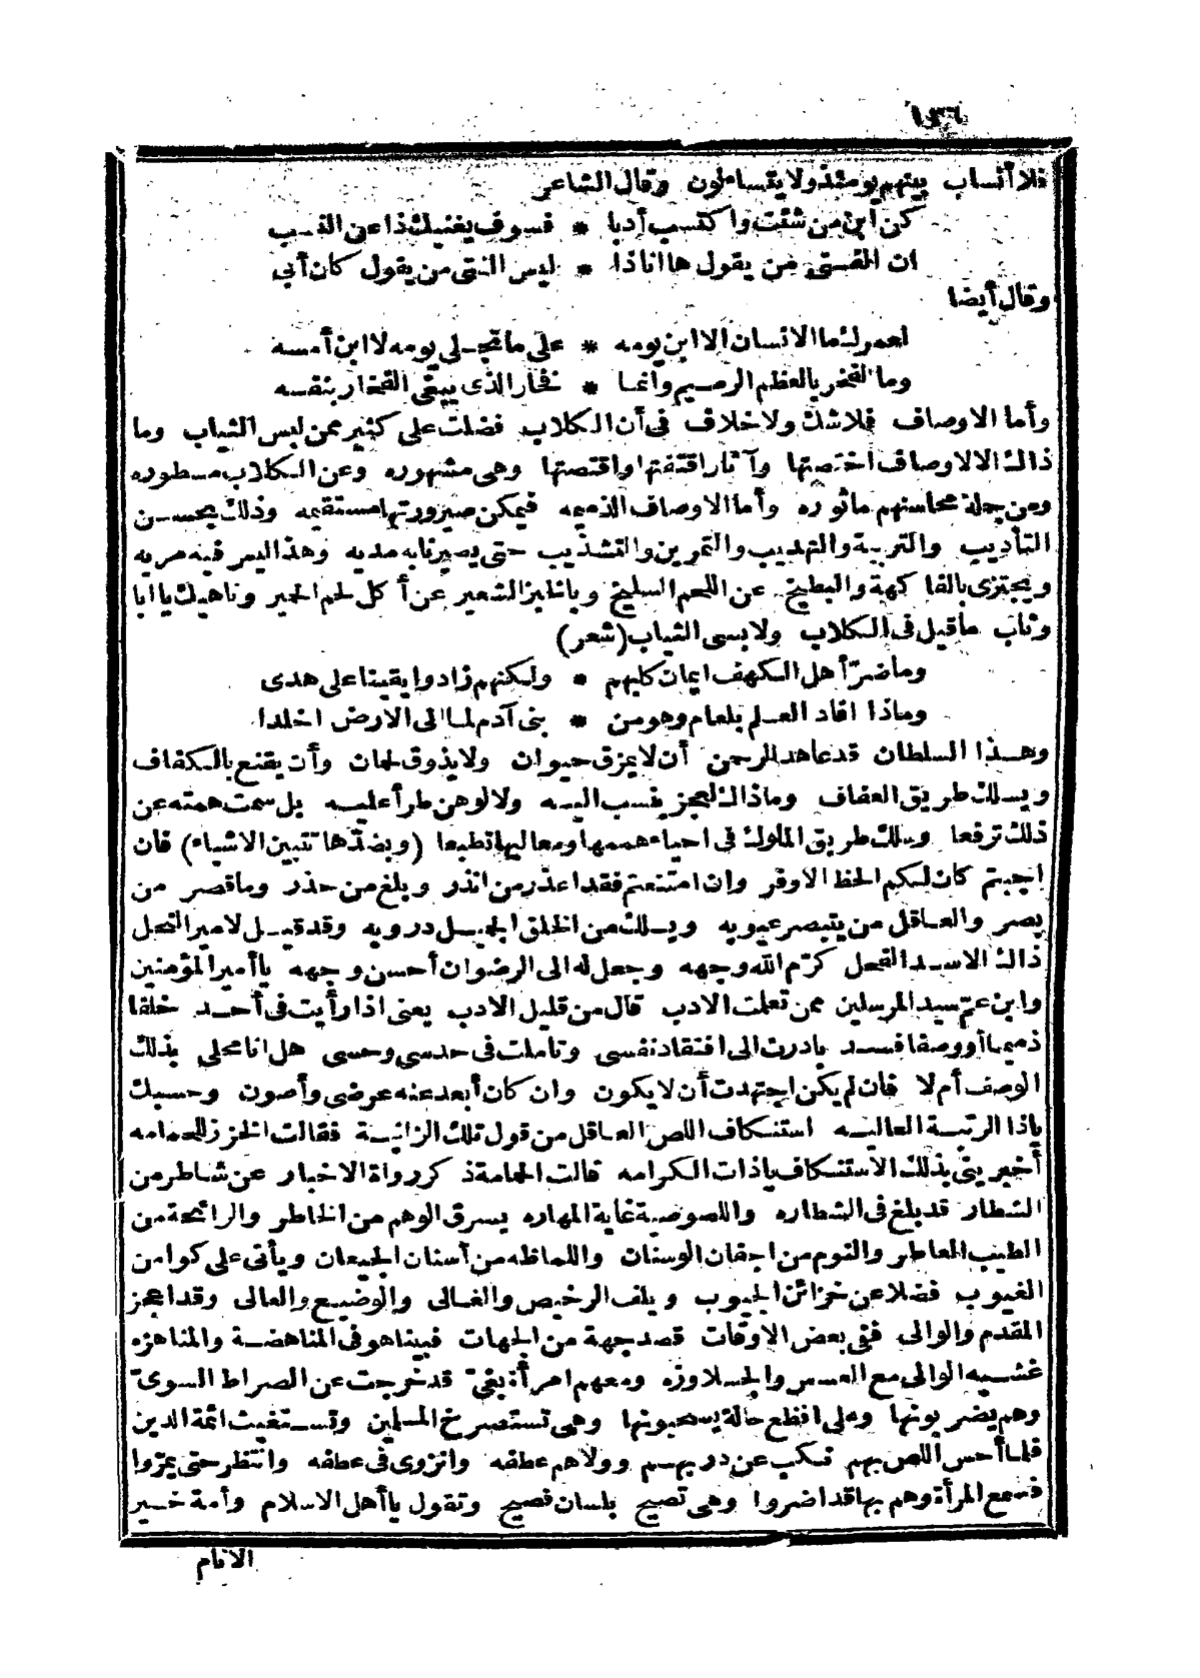 ١٣٦
فلا أنساب بينهم يومئذ ولا يتساءلون وقال الشاعر
كن ابن من شئت واكتسب أدبا * فسوف يغنيك ذا عن النسب
ان الفتى من يقول ها أنا ذا * ليس الفتى من يقول كان أبى
وقال أيضا
لعمرك ما الانسان الا ابن يومه * على ما تجلى يومه لا ابن أمسه
وما الفخر بالعظم الرميم وانما * فخار الذى يبغى الفخار بنفسه
وأما الاوصاف فلا شك ولا خلاف فى أن الكلاب فضلت على كثير ممن لبس الثياب وما
ذاك الا لاوصاف اختصتها وآثار اقتفتها واقتصتها وهى مشهوره وعن الكلاب مسطوره
ومن جملة محاسنهم مأثوره وأما الاوصاف الذميمه فيمكن صيرورتها مستقيمه وذلك بحسن
التأديب والتربية والتهذيب والتمرين والتشذيب حتى يصير نابه مديه وهذا ليس فيه مريه
ويجتزى بالفاكهة والبطيخ عن اللحم السليخ وبالخبز الشعير عن أكل لحم الحمير وناهيك يا ابا
وثاب ما قيل فى الكلاب ولابسى الثياب (شعر)
وما ضرّ أهل الكهف ايمان كلبهم * ولكنهم زادوا يقينا على هدى
وماذا افاد العلم بلعام وهو من * بنى آدم لما الى الارض اخلدا
وهذا السلطان قد عاهد الرحمن أن لا يمزق حيوان ولا يذوق لحمان وأن يقنع بالكفاف
ويسلك طريق العفاف وما ذاك لعجز ينسب اليه ولا لوهن طرأ عليه بل سمت همته عن
ذلك ترفعا وسلك طريق الملوك فى احياء هممها ومعاليها تطبعا (وبضدّها تتبين الاشياء) فان
اجبتم كان لكم الحظ الاوفر وان امتنعتم فقد اعذر من انذر وبلغ من حذر وما قصر من
بصر والعاقل من يتبصر عيوبه ويسلك من الخلق الجميل دروبه وقد قيل لامير النحل
ذاك الاسد الفحل كرّم الله وجهه وجعل له الى الرضوان أحسن وجهه يا أمير المؤمنين
وابن عم سيد المرسلين ممن تعلمت الادب قال من قليل الادب يعنى اذا رأيت فى أحد خلقا
ذميما أو وصفا فسد بادرت الى افتقاد نفسى وتأملت فى حدسى وحسى هل انا محلى بذلك
الوصف أم لا فان لم يكن اجتهدت أن لا يكون وان كان أبعد عنه عرضى وأصون وحسبك
ياذا الرتبة العاليه استنكاف اللص العاقل من قول تلك الزانية فقالت الخزز للحمامه
أخبرينى بذلك الاستنكاف ياذات الكرامه قالت الحمامة ذكر رواة الاخبار عن شاطر من
الشطار قد بلغ فى الشطاره واللصوصية غاية المهاره يسرق الوهم من الخاطر والرائحة من
الطيب العاطر والنوم من اجفان الوسنان واللماظه من أسنان الجيعان ويأتى على كوامن
الغيوب فضلا عن خزائن الجيوب ويلف الرخيص والغالى والوضيع والعالى وقد اعجز
المقدم والوالى ففى بعض الاوقات قصد جهة من الجهات فبينا هو فى المناهضة والمناهزه
غشيه الوالى مع العسس والجلاوزه ومعهم امرأة بغىّ قد خرجت عن الصراط السوىّ
وهم يضربونها وعلى افظع حالة يسحبونها وهى تستصرخ المسلمين وتستغيث ائمة الدين
فلما أحس اللص بهم تنكب عن دربهم وولاهم عطفه وانزوى فى عطفه وانتظر حتى يمرّوا
فسمع المرأة وهم بها قد اضروا وهى تصيح بلسان فصيح وتقول يا أهل الاسلام وأمة خير
الانام